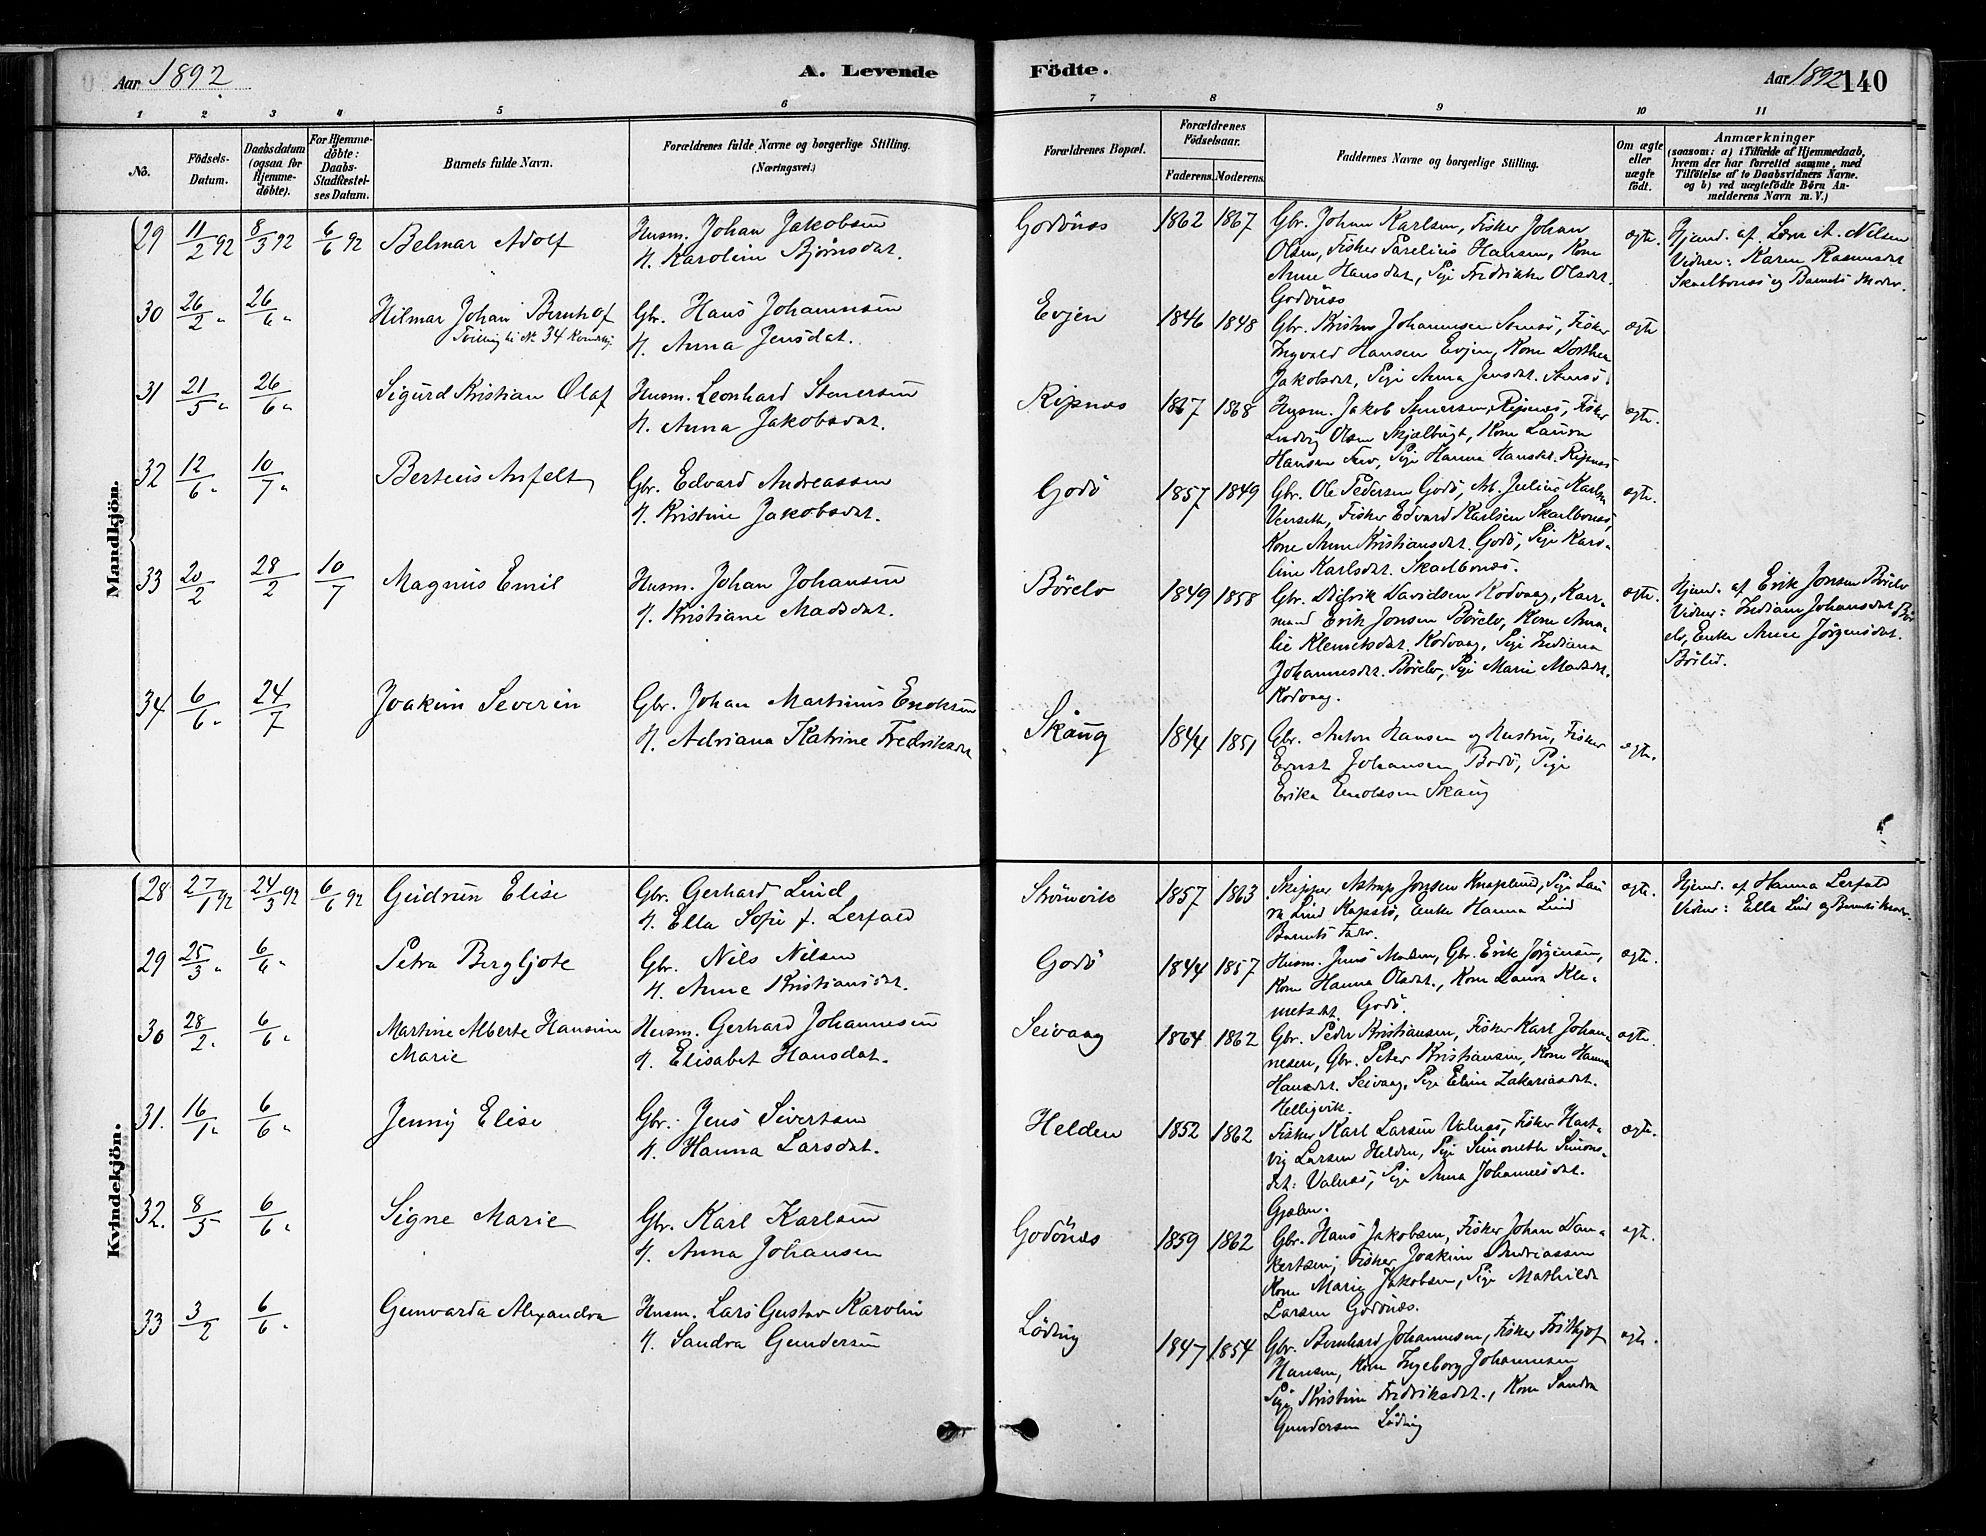 Aar 1892
A. Levende
Födte.
Aar 1892 140
1 2 3 4 5 6 7 8 9 10 11
No.
Födsels-
Datum.
Daabsdatum
(ogsaa for
Hjemme-
döbte).
For Hjemme-
döbte:
Daabs-
Stadfæstel-
ses Datum.
Barnets fulde Navn.
Forældrenes fulde Navne og borgerlige Stilling.
(Næringsvei.)
Forældrenes Bopæl.
Forældrenes
Födselsaar.
Faderens. Moderens.
Faddernes Navne og borgerlige Stilling.
Om ægte
eller
uægte
födt.
Anmærkninger
(saasom: a) i Tilfælde af Hjemmedaab,
hvem der har forrettet samme, med
Tilföielse af to Daabsvidners Navne.
og b) ved uægtefödte Börn An-
melderens Navn m. V.)
Mandkjön.
29 11/2 92 8/3 92 6/6 92 Belmar Adolf
Husm. Johan Jakobsen
H. Karoline Bjørnsdat.
Godönes 1862 1867
Gbr. Johan Karlsen, Fisker Johan
Olsen, Fisker Parelius Hansen, Kone
Anne Hansdat, Pige Fredrikke Olsdat.
Godönes
ægte.
Hjemd. af Lærer A. Nilsen
Vidner: Karen Rasmusdat
Skaalbones og Barnets Moder.
30 26/2 " 26/6 " Hilmar Johan Bernhof
Tvilling til No 34 Kvindekj.
Gbr. Hans Johannesen
H. Anna Jensdat.
Evjen 1846 1848
Gbr. Kristen Johannesen Seines, Fisker
Ingvald Hansen Evjen, Kone Dorthea
Jakobsdat, Pige Anna Jensdat.
ægte
31 21/5 " 26/6 " Sigurd Kristian Olaf
Husm. Leonhard Stenersen
H. Anna Jakobsdat.
Ripnes 1867 1868
Husm. Jakob Stenersen Ripnes, Fisker
Ludvig Olsen Skjælbugt, Kone Laura
Hansen, Pige Hanna Hansdat. Ripnes
ægte.
32 12/6 " 10/7 " Berteus Anfelt
Gbr. Edvard Andreassen
H. Kristine Jakobsdat.
Godö 1857 1849
Gbr. Ole Pedersen Godö, Arb. Julius Karlsen
Venseth, Fisker Edvard Karlsen Skaalbones,
Kone Anne Kristiansdat. Godö, Pige Karo-
line Karlsdat. Skaalbones.
ægte.
33 20/2 28/2 10/7 Magnus Emil
Husm. Johan Johansen
H. Kristiane Madsdat.
Börelv 1849 1858
Gbr. Didrik Davidsen Kodvaag, Kar-
mand Erik Jonsen Börelv, Kone Ama-
lie Klemetsdat. Kodvaag, Pige Indiana
Johannesdat. Börelv, Pige Marie Madsdat.
Kodvaag.
ægte.
Hjemd. af Erik Jonsen Börelv
Vidner: Indiana Johansdat Bör
elv, Enke Anne Jörgensdat.
34 6/6 " 24/7 Joakim Severin
Gbr. Johan Martinus Enoksen
H. Adriana Katrine Fredriksdat
Skaug 1844 1851
Gbr. Anton Hansen og Hustru, Fisker
Ernst Johansen Bodö, Pige
Erika Enoksen Skaug
ægte.
Kvindekjön.
28 27/1 92 24/3 92 6/6 92 Gudrun Elise
Gbr. Gerhard Lind
H. Ella Sofie f. Lerfald
Strömvik 1857 1863
Skipper Astrup Jonsen Knaplund, Pige Lau
ra Lind Kapstö, Enke Hanna Lind
Barnets Fader.
ægte.
Hjemd. af Hanna Lerfald
Vidner: Ella Lind og Barnets Moder.
29 25/3 " 6/6 " Petra Bergljote
Gbr. Nils Nilsen
H. Anne Kristiansdat.
Godö 1844 1857
Husm. Jens Madsen, Gbr. Erik Jörgensen,
Kone Hanna Olsdat., Kone Laura Kle-
metsdat. Godö.
ægte.
30 28/2 " 6/6 " Martine Alberte Hansine
Marie
Husm. Gerhard Johannesen
H. Elisabet Hansdat.
Seivaag 1864 1862
Gbr. Peder Kristiansen, Fisker Karl Johan
nesen, Gbr. Peter Kristiansen, Kone Hanna
Hansdat. Seivaag, Pige Eline Zakariasdat.
Helligvik.
ægte.
31. 16/1 " 6/6 " Jenny Elise
Gbr. Jens Sivertsen
H. Hanna Larsdat.
Helden 1852 1862
Fisker Karl Larsen Valnes, Fisker Hart-
vig Larsen Helden, Pige Simoneth Simons-
dat: Valnes, Pige Anna Johannesdat.
Gjælen.
ægte.
32. 8/5 6/6 " Signe Marie
Gbr. Karl Karlsen
H. Anna Johansen
Godönes 1859 1862
Gbr. Hans Jakobsen, Fisker Johan Dan-
kertsen, Fisker Joakim Andreassen
Kone Marie Jakobsen, Pige Mathilde
Larsen Godönes.
ægte.
33 3/2 6/6 " Gunvarda Alexandra
Husm. Lars Gustav Karolin
H. Sandra Gundersen
Löding 1847 1854
Gbr. Bernhard Johannesen, Fisker Fritkjof
Hansen, Kone Ingeborg Johannesen
Pige Kristine Fredriksdat., Kone Sandra
Gundersen Löding
ægte.